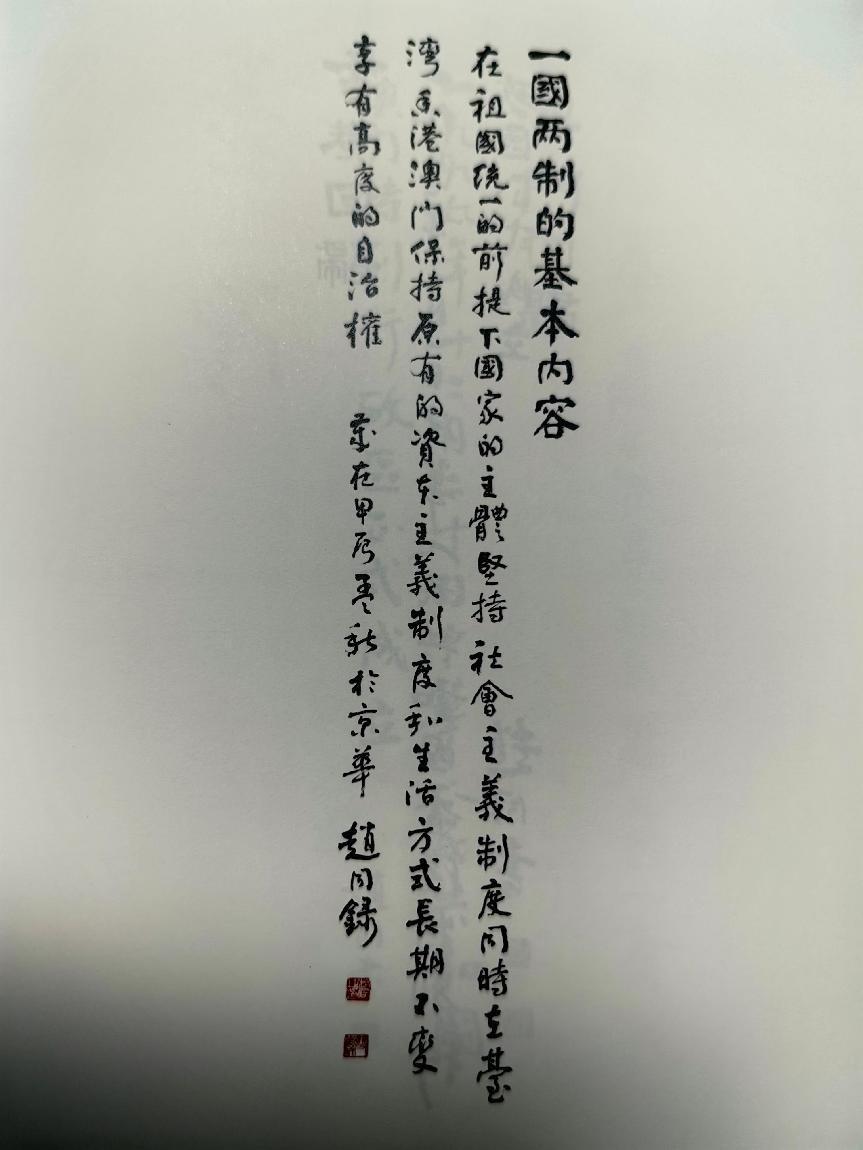 一國两制的基本内容
在祖國统一的前提下國家的主體堅持社會主義制度同時在臺
湾香港澳门保持原有的資本主義制度和生活方式長期不變
享有高度的自治權 歲在甲辰孟秋於京華 趙同録